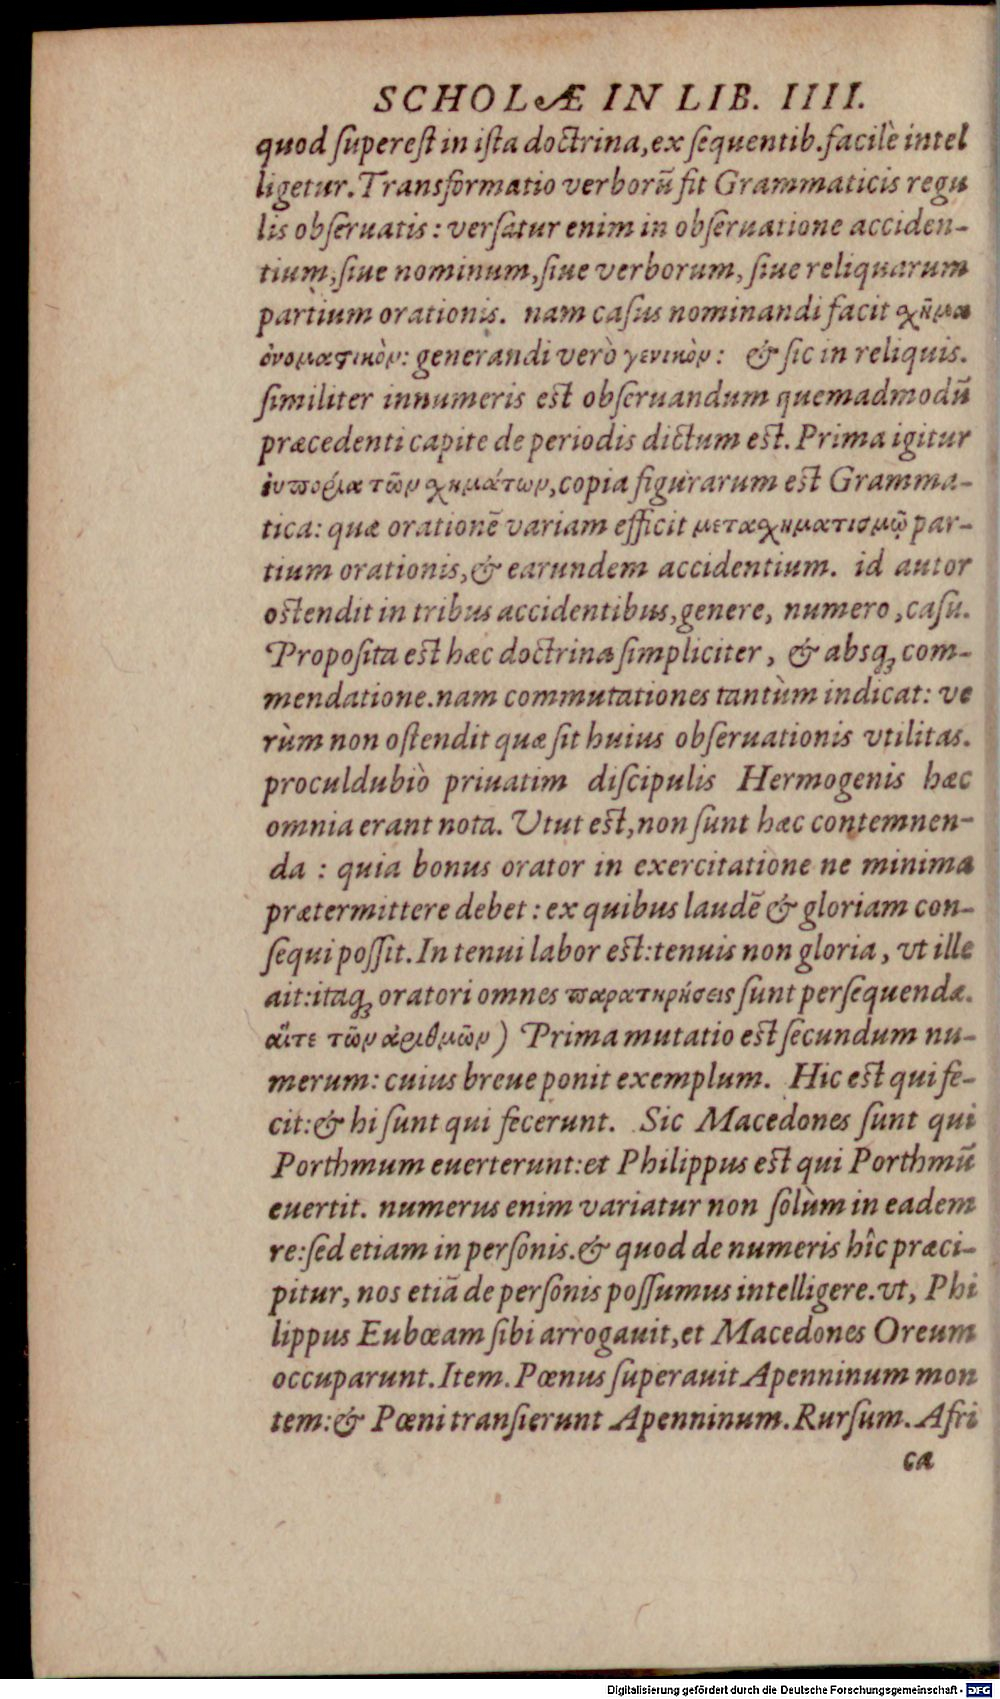 SCHOLÆ IN LIB. IIII.
quod ſupereſt in iſta doctrina, ex ſequentib. facilè intel
ligetur. Transformatio verborū fit Grammaticis regu
lis obſeruatis: verſatur enim in obſeruatione acciden-
tium, ſiue nominum, ſiue verborum, ſiue reliquarum
partium orationis. nam caſus nominandi facit σχῆμα
ὀνοματικὸν: generandi verò γενικὸν: & ſic in reliquis.
ſimiliter innumeris eſt obſeruandum quemadmodū
præcedenti capite de periodis dictum eſt. Prima igitur
ἐυπορία τῶν σχημάτων, copia figurarum eſt Gramma-
tica: quæ orationē variam efficit μετασχηματισμῷ par-
tium orationis, & earundem accidentium. id autor
oſtendit in tribus accidentibus, genere, numero, caſu.
Propoſita eſt hæc doctrina ſimpliciter, & absq; com-
mendatione. nam commutationes tantùm indicat: ve
rùm non oſtendit quæ ſit huius obſeruationis vtilitas.
proculdubiò priuatim diſcipulis Hermogenis hæc
omnia erant nota. Vtut eſt, non ſunt hæc contemnen-
da: quia bonus orator in exercitatione ne minima
prætermittere debet: ex quibus laudē & gloriam con-
ſequi poſſit. In tenui labor eſt: tenuis non gloria, vt ille
ait: itaq; oratori omnes παρατηρήσεις ſunt perſequendæ.
αἵτε τῶν ἀριθμῶν) Prima mutatio eſt ſecundum nu-
merum: cuius breue ponit exemplum. Hic eſt qui fe-
cit: & hi ſunt qui fecerunt. Sic Macedones ſunt qui
Porthmum euerterunt: et Philippus eſt qui Porthmū
euertit. numerus enim variatur non ſolùm in eadem
re: ſed etiam in perſonis. & quod de numeris hîc præci-
pitur, nos etiā de perſonis poſſumus intelligere. vt, Phi
lippus Eubœam ſibi arrogauit, et Macedones Oreum
occuparunt. Item. Pœnus ſuperauit Apenninum mon
tem: & Pœni tranſierunt Apenninum. Rurſum. Afri
ca
Digitalisierung gefördert durch die Deutsche Forschungsgemeinschaft - DFG